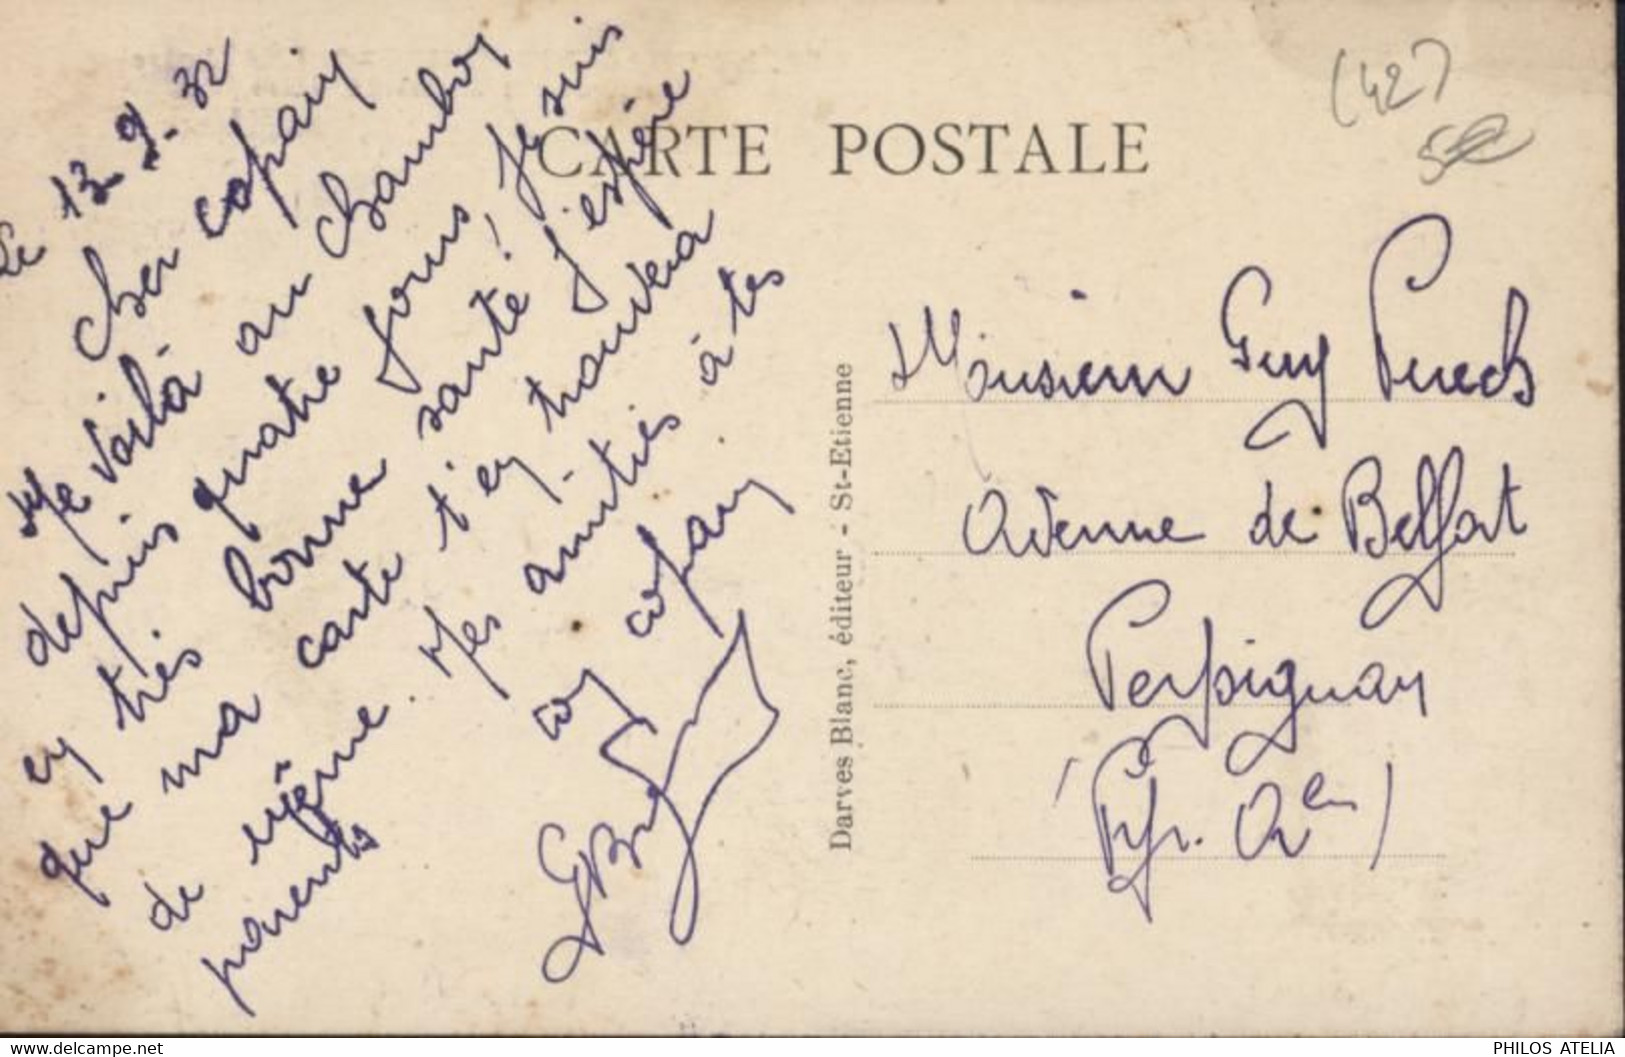 Le 13-9-32
Cher copain
Me voilà au Chambon
depuis quatre jours, je suis
en très bonne santé! J'espère
que ma carte t'en trouvera
de même. Mes amitiés à tes
parents
ton copain
CARTE POSTALE
(42)
Monsieur Guy Puech
Avenue de Belfort
Perpignan
(Pyr. Oles)
Darves Blanc, éditeur - St-Etienne
www.delcampe.net
PHILOS ATELIA